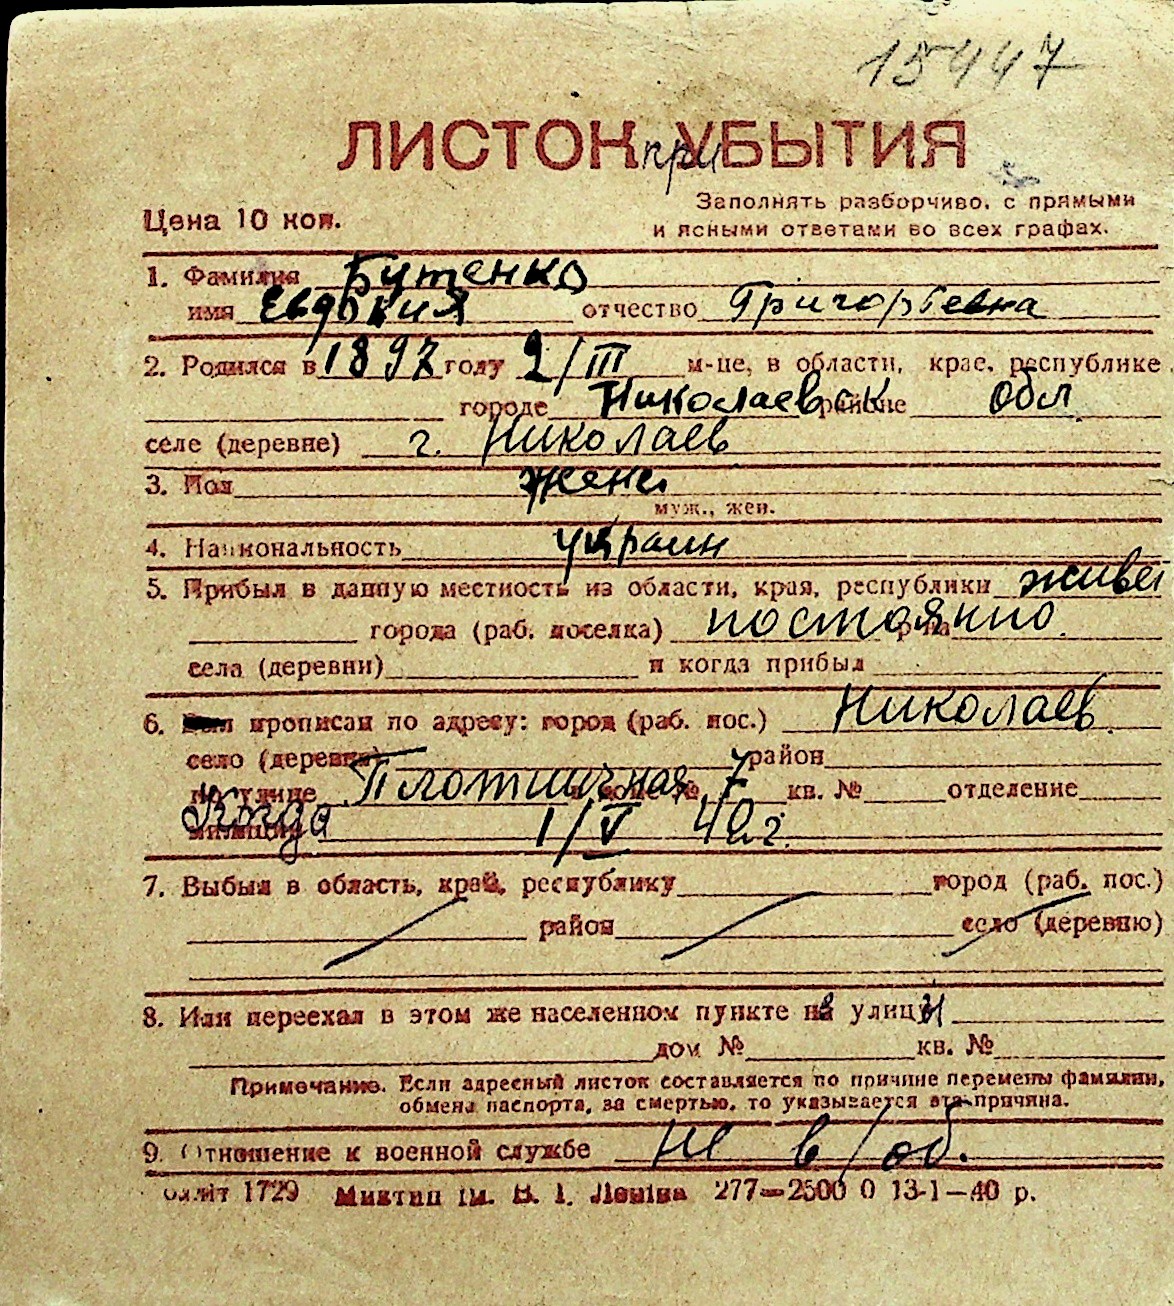 15447
ЛИСТОК при УБЫТИЯ
Цена 10 коп.
Заполнять разборчиво, с прямыми
и ясными ответами во всех графах.
1. Фамилия Бутенко
имя Евдокия отчество Григорьевна
2. Родился в 1897 году 2/III м-це, в области, крае, республике
городе Николаевск районе обл
селе (деревне) г. Николаев
3. Пол женс.
муж., жен.
4. Национальность украин
5. Прибыл в данную местность из области, края, республики живет
города (раб. поселка) постоянно р-на
села (деревни) и когда прибыл
6. прописан по адресу: город (раб. пос.) Николаев.
село (деревня) район
по улице Плотничная дом № 7 кв. № отделение
милиции Когда 1/V 40 г.
7. Выбыл в область, край, республику город (раб. пос.)
район село (деревню)
8. Или переехал в этом же населенном пункте на улицу
дом № кв. №
Примечание. Если адресный листок составляется по причине перемены фамилии,
обмена паспорта, за смертью, то указывается эта причина.
9. Отношение к военной службе не в/об.
1729 ім. В. І. Леніна 277—2500 0 13-1—40 р.